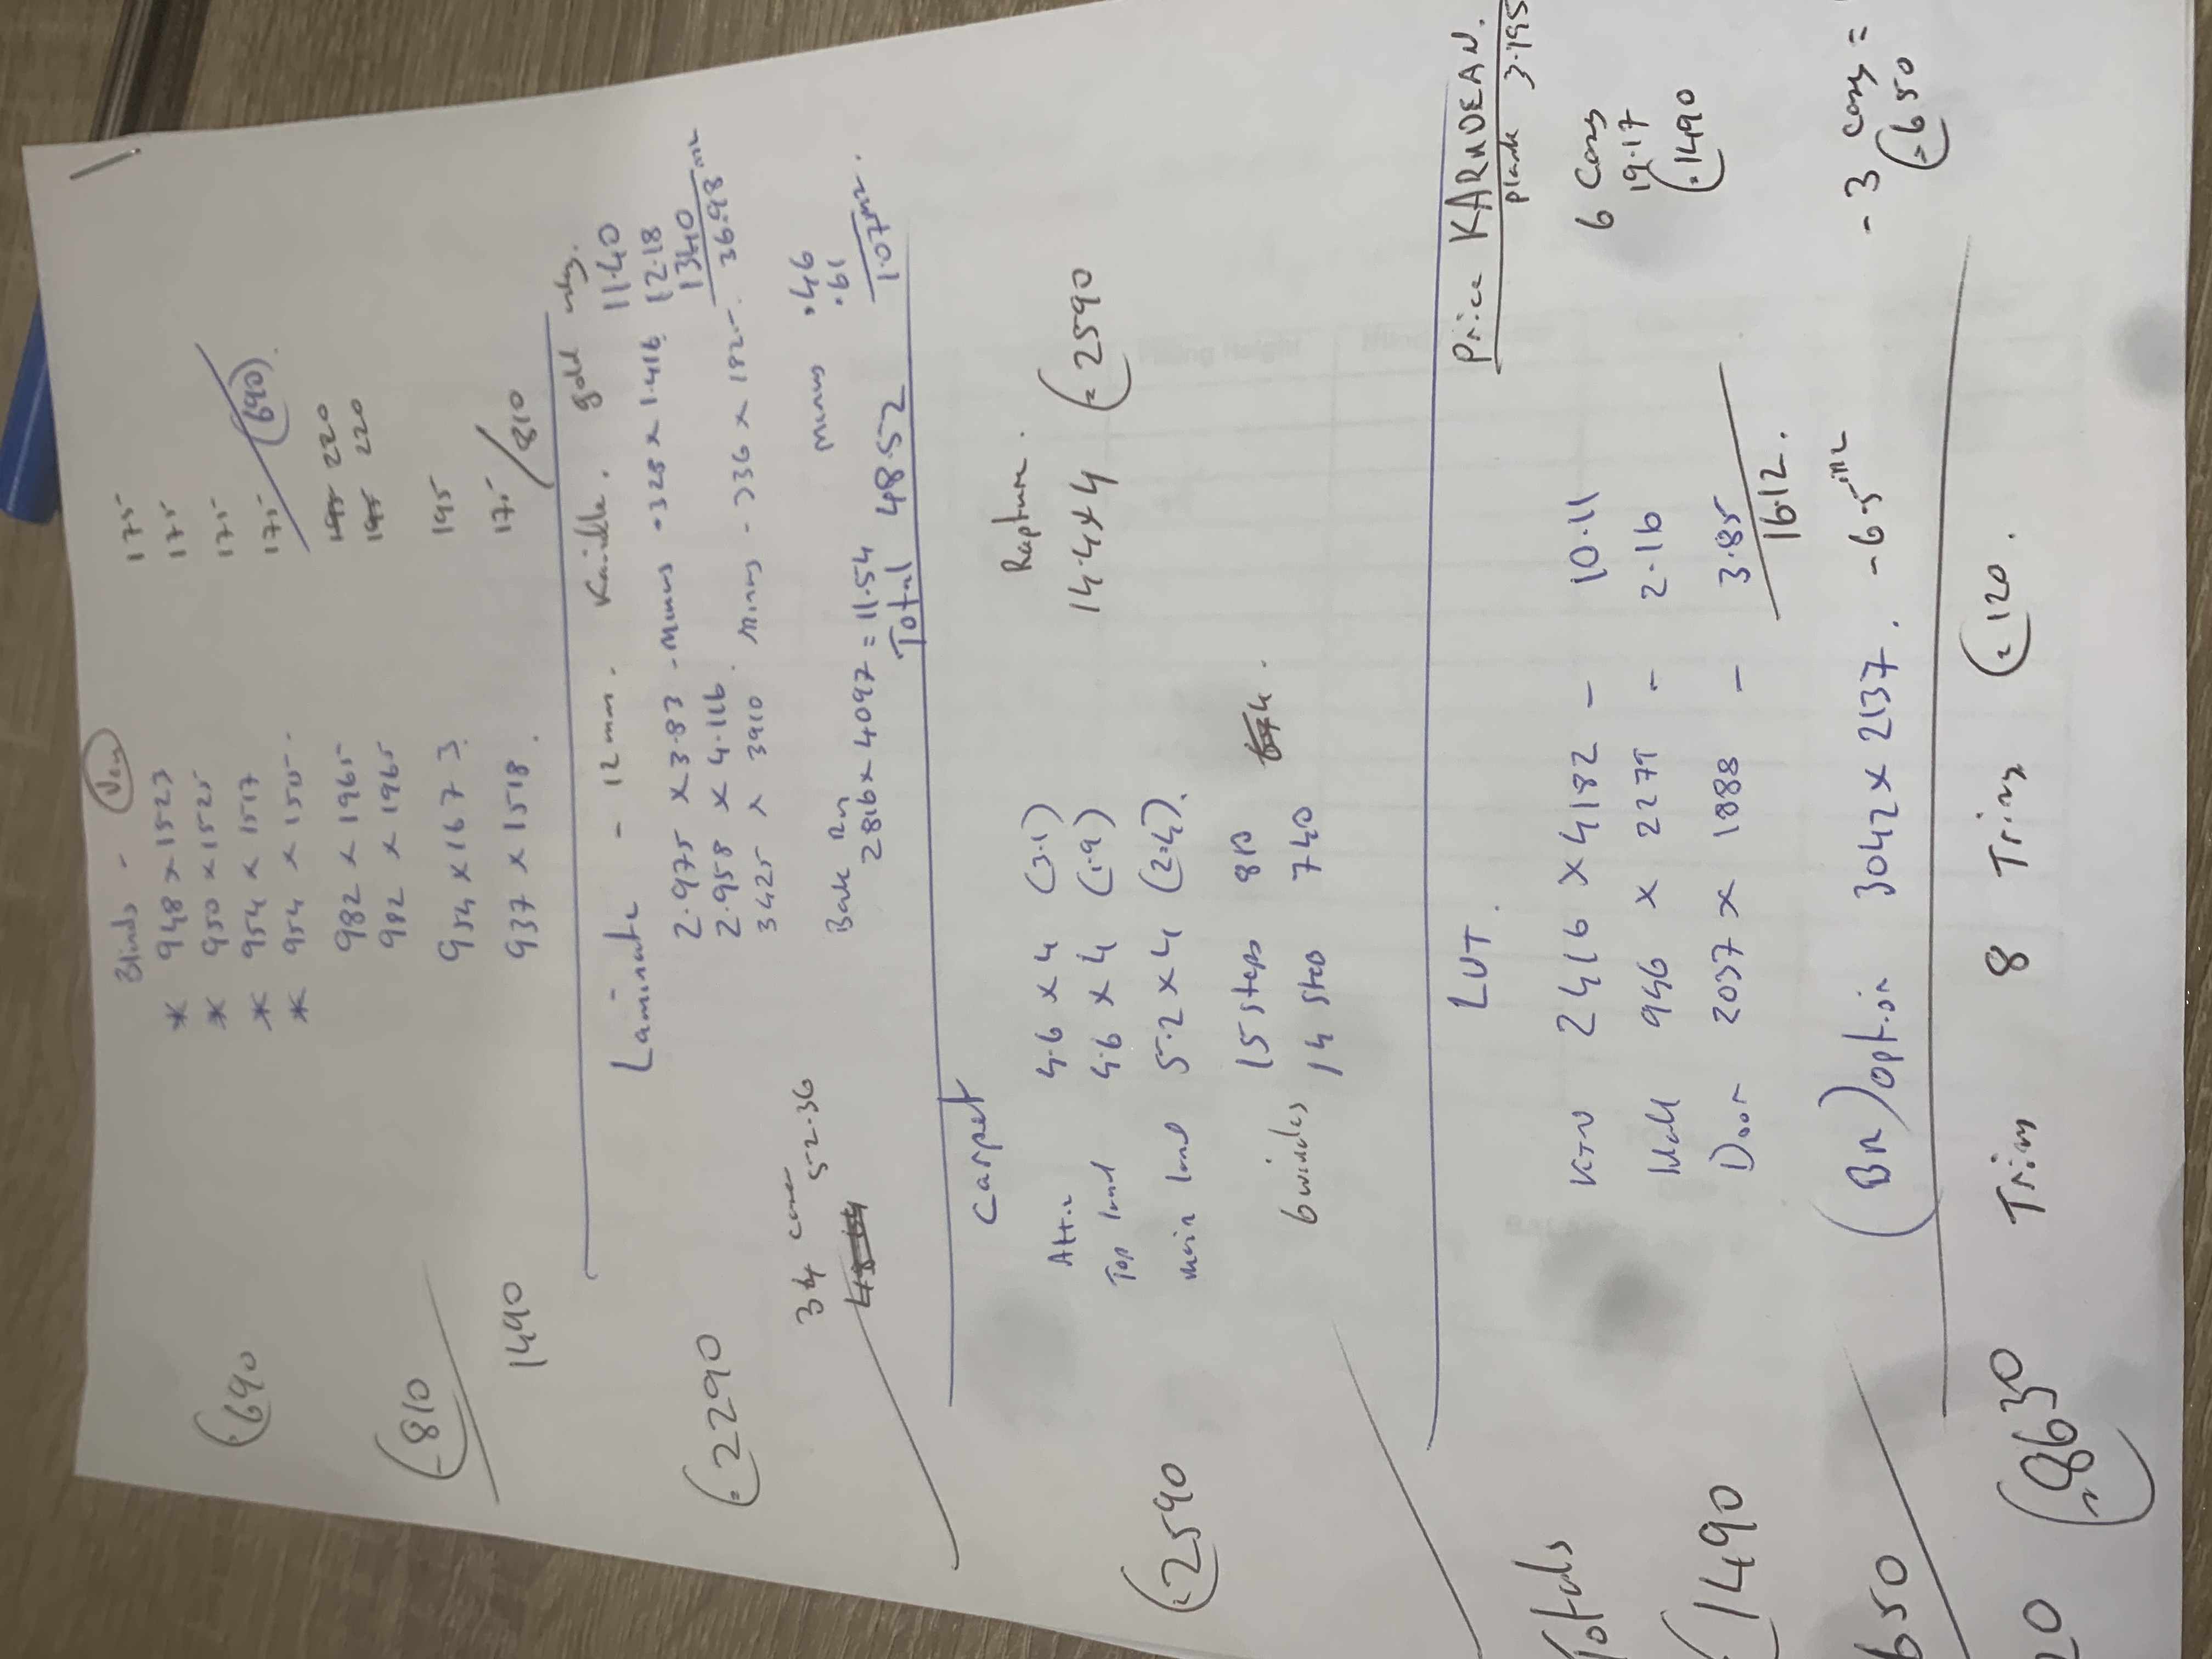 Blinds - Ven
* 948 x 1523 175-
* 950 x 1525 175-
* 954 x 1517 175-
* 954 x 1515- 175- 690
(690
982 x 1965 195 220
982 x 1965 195 220
954 x 1673 195
937 x 1518. 175- 810
(810
1490
Laminate - 12 mm. Kaindle. gold
2.975 x 3.83 - Minus - 328 x 1.416 11.40
2.958 x 4.116. 12.18
3425 x 3910 Minus - 336 x 182- 1340
36.98 m2
(=2290
Back Rm minus .46
2816 x 4097 = 11.54 .61
Total 48.52 1.07m2.
34 52.36
Carpet Rapture.
Attic 4.6 x 4 (3.1) 14.4 x 4 (=2590
Top land 4.6 x 4 (1.9)
main land 5.2 x 4 (2.4).
15 steps 810
6 windes 14 step 740
(=2590
LVT. Price KARNDEAN.
plank 3.195
KTN 2416 x 4182 - 10.11 6 Cons
Hall 946 x 2279 - 2.16 19.17
Door 2037 x 1888 - 3.85 (=1490
16.12.
Totals
(1490
(Bn) option 3042 x 2137. - 6.5 m2 - 3 Cons =
(=650
650
Trim 8 Trims (=120.
20 (=8630